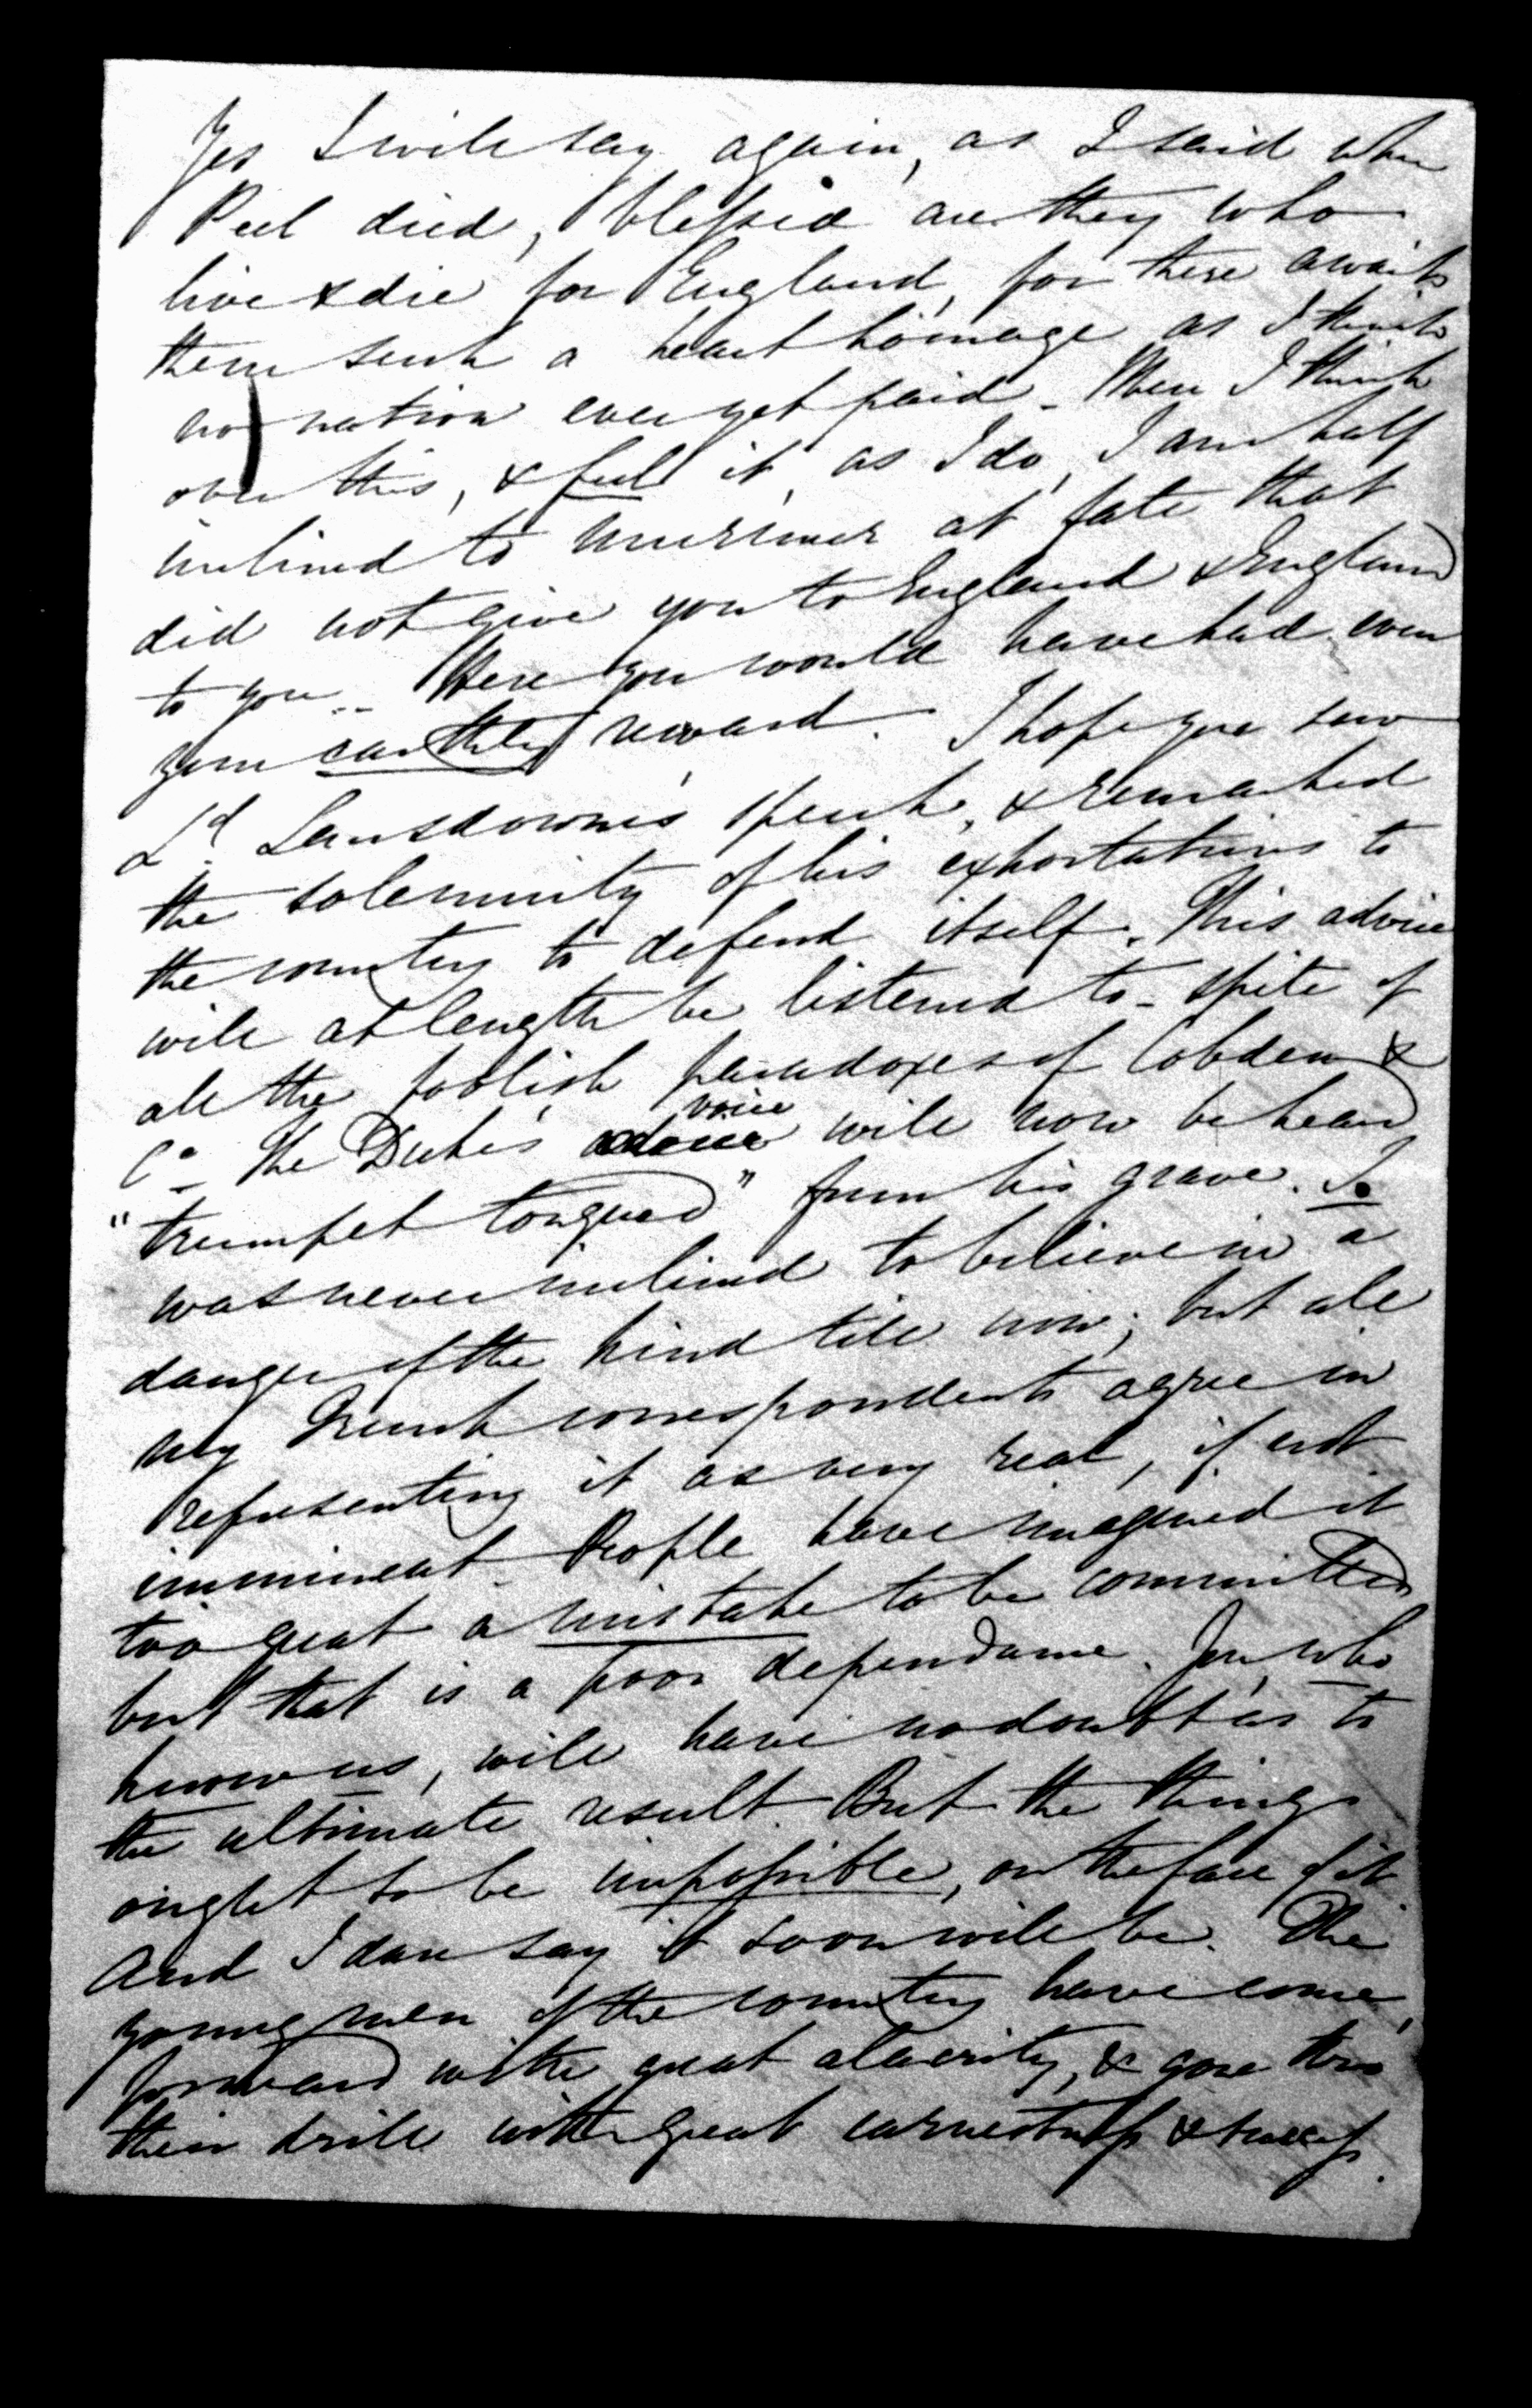 Yes I will say again, as I said when
Peel died, blessed are they who
live & die for England, for there awaits
them such a heart homage as I think
no nation ever yet paid. When I think
over this, & feel it, as I do, I am half
inclined to murmur at fate that
did not give you to England & England
to you.. Here you would have had even
your earthly reward. I hope you saw
Ld. Lansdowne's speech, & remarked
the solemnity of his exhortations to
the country to defend itself. This advice
will at length be listened to - spite of
all the foolish paradoxes of Cobden &
Co. The Duke's voice will now be heard
"trumpet tongued" from his grave. I
was never inclined to believe in a
danger of the kind till now; but all
my French correspondents agree in
representing it as very real, if not
imminent. People have imagined it
too great a mistake to be committed
but that is a poor dependance. You, who
know us, will have no doubt as to
the ultimate result. But the thing
ought to be impossible, on the face of it
And I dare say it soon will be. The
young men of the country have come
forward with great alacrity, & gone thro
their drill with great earnestness &